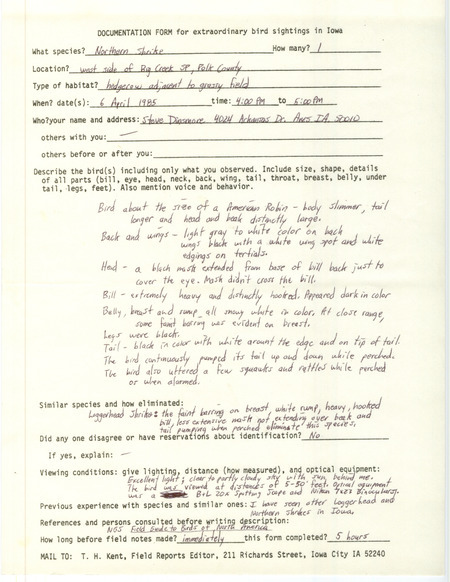 DOCUMENTATION FORM for extraordinary bird sightings in Iowa
What species? Northern Shrike How many? 1
Location? west side of Big Creek SP, Polk County
Type of habitat? hedgerow adjacent to grassy field
When? date(s): 6 April 1985 time: 4:00 PM to 5:00 PM
Who? your name and address: Steve Dinsmore 4024 Arkansas Dr. Ames IA. 50010
others with you: —
others before or after you:
Describe the bird(s) including only what you observed. Include size, shape, details
of all parts (bill, eye, head, neck, back, wing, tail, throat, breast, belly, under
tail, legs, feet). Also mention voice and behavior.
Bird about the size of a American Robin - body slimmer, tail
longer and head and beak distinctly large.
Back and wings - light gray to white color on back
wings black with a white wing spot and white
edgings on tertials.
Head - a black mask extended from base of bill back just to
cover the eye. Mask didn't cross the bill.
Bill - extremely heavy and distinctly hooked. Appeared dark in color
Belly, breast and rump all snowy white in color. At close range,
some faint barring was evident on breast.
Legs were black.
Tail - black in color with white around the edge and on tip of tail.
The bird continuously pumped its tail up and down while perched.
The bird also uttered a few squawks and rattles while perched
or when alarmed.
Similar species and how eliminated:
Loggerhead Shrike: the faint barring on breast, white rump, heavy, hooked
bill, less extensive mask not extending over beak and
tail pumping when perched eliminate this species.
Did any one disagree or have reservations about identification? No
If yes, explain: —
Viewing conditions: give lighting, distance (how measured), and optical equipment:
Excellent light; clear to partly cloudy sky with sun behind me.
The bird was viewed at distances of 5-50 feet. Optical equipment
was a B+L 20x Spotting Scope and Nikon 7x23 Binoculars.
Previous experience with species and similar ones: I have seen other Loggerhead and
Northern Shrikes in Iowa.
References and persons consulted before writing description:
NGS Field Guide to Birds of North America
How long before field notes made? immediately this form completed? 5 hours
MAIL TO: T. H. Kent, Field Reports Editor, 211 Richards Street, Iowa City IA 52240